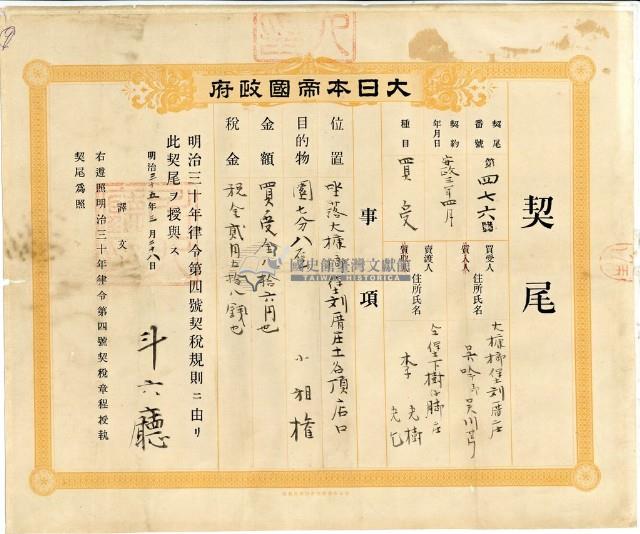 大日本帝國政府
契尾
契尾番號 第四七六號
契約年月日 安政三年四月
種目 買受
買受人
質入人
住所氏名
大槺榔堡刘厝庄
吳
吳川
賣渡人
質取人
住所氏名
仝堡下樹仔脚庄
李
光樹
事項
位置 坐落大槺榔堡刘厝庄土名頂店口
目的物 園七分八厘 小租權
金額 買受金八拾六円也
税金 税金貳円五拾八錢也
明治三十年律令第四號契稅規則ニ由リ
此契尾ヲ授與ス
明治三十五年三月二十八日
斗六廳
譯文
右遵照明治三十年律令第四號契稅章程授執
契尾爲照
國史館臺灣文獻館
TAIWAN HISTORICA